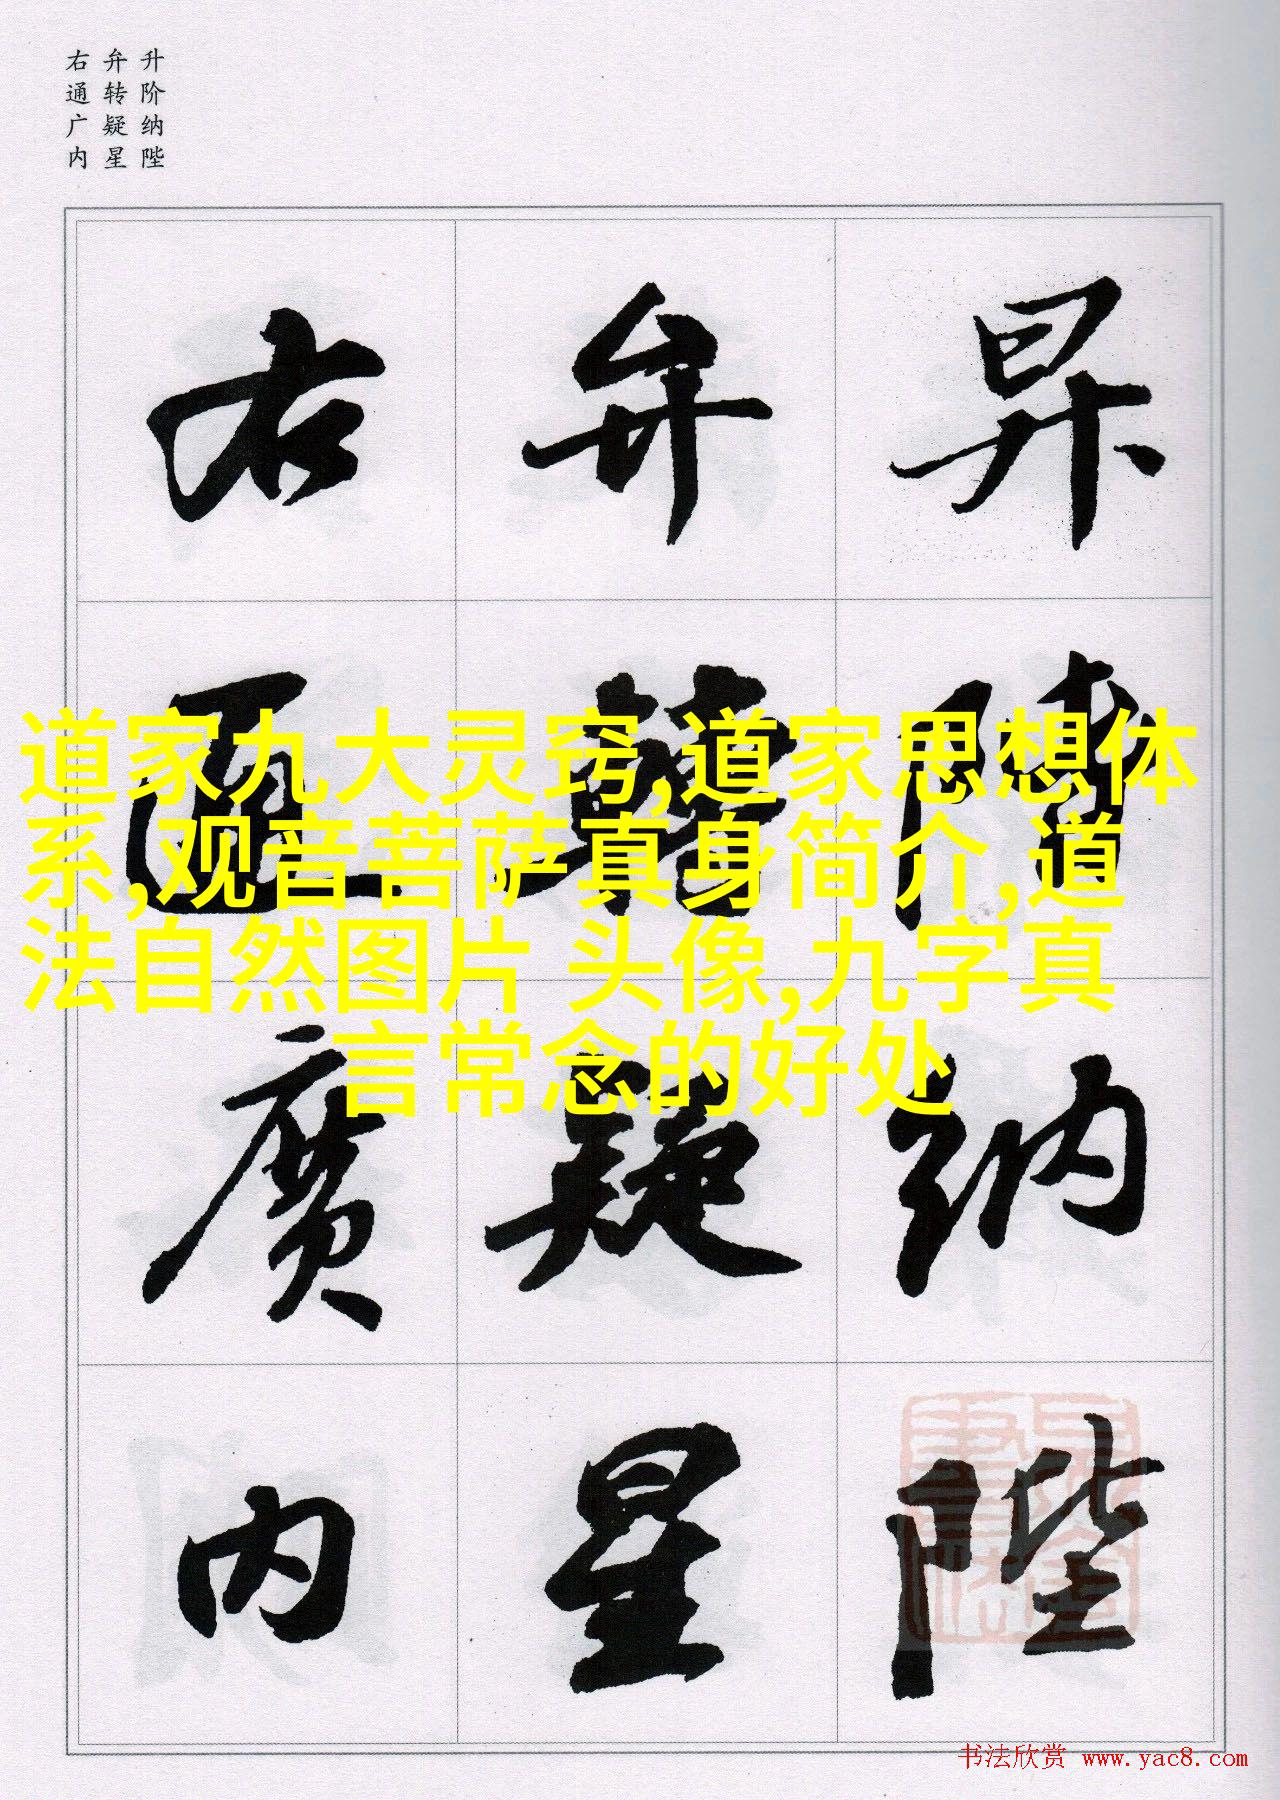 升阶纳陛
弁转疑星
右通广内
昇階納陛
弁轉疑星
右通廣内
道家九大灵窍,道家思想体
系,观音菩萨真身简介,道
法自然图片 头像,九字真
言常念的好处
书法欣赏 www.yac8.com